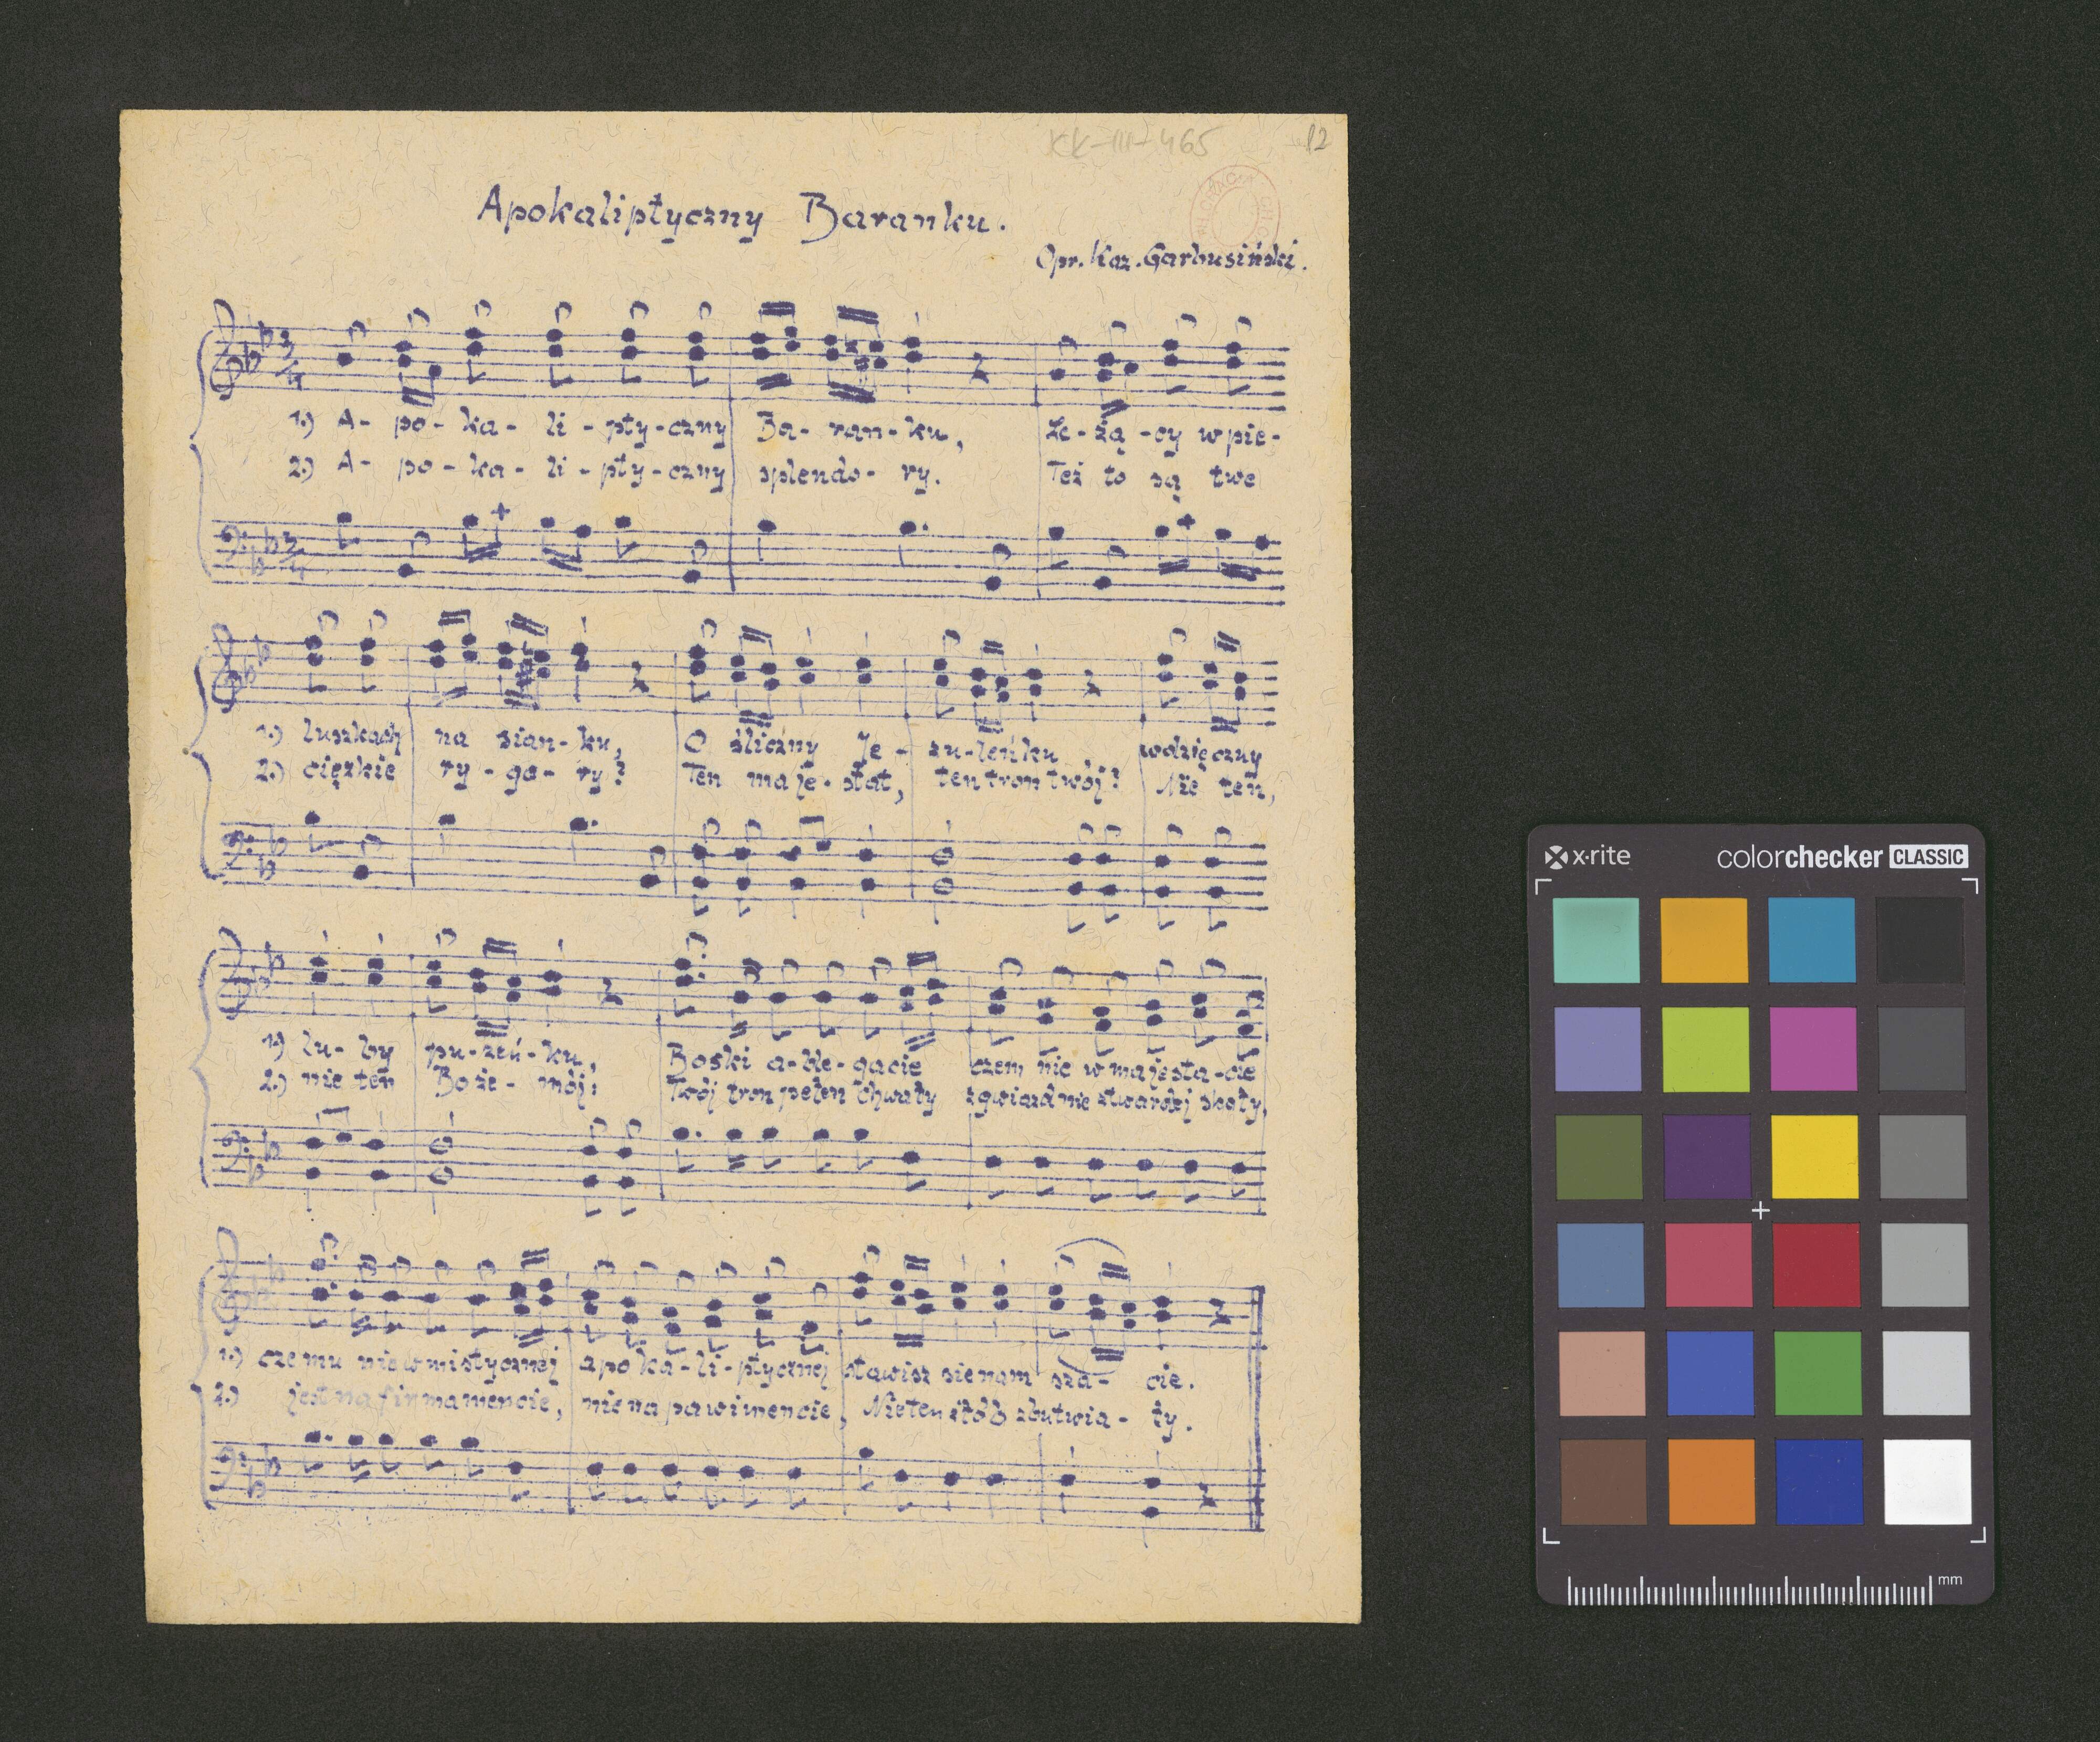 KK-III-465
12
Apokaliptyczny Baranku.
Opr. Kaz. Garbusiński.
3/4
1.) A- po- ka- li- pty-czny Ba- ran- ku, Le- żą -cy w pie-
2.) A- po- ka- li- pty-czny splendo- ry. Też to są twe
3/4
1.) luszkach na sian- ku, O śliczny Je- zu-leńku wdzięczny
2.) ciężkie ry- go- ry? Ten maje- stat, ten tron twój? Nie ten,
1.) lu- by pu-zeń-ku, Boski a-ble-gacie czem nie w majesta-cie
2.) nie ten Boże- mój: Twój tron pełen chwały z gwiazd nie z twardej skały,
1.) czemu nie w mistycznej apoka-li-ptycznej stawisz sie nam sza- cie.
2.) jest na firmamencie, nie na pawimencie, Nie ten żłób zbutwia- ły.
x-rite colorchecker CLASSIC
mm